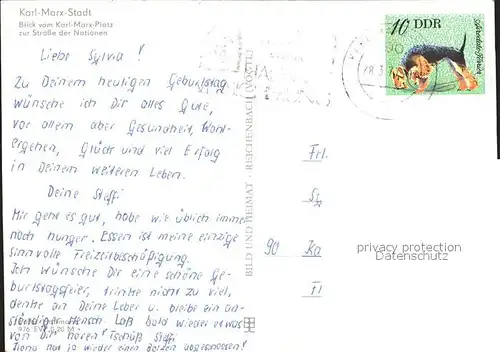 Karl-Marx-Stadt
Blick vom Karl-Marx-Platz
zur Straße der Nationen
10 DDR
Liebe Sylvia!
Zu Deinem heutigen Geburtstag
wünsche ich Dir alles Gute,
vor allem aber Gesundheit, Wohl-
ergehen, Glück und viel Erfolg
in Deinem weiteren Leben.
Deine Steffi
Mir geht es gut, habe wie üblich immer
noch hunger. Essen ist meine einzige
sinnvolle Freizeitbeschäftigung.
Ich wünsche Dir eine schöne Ge-
burtstagsfeier, trinke nicht zu viel,
denke an Deine Leber u. bleibe ein an-
ständiger Mensch. Laß bald wieder etwas
von Dir hören! Tschüß Steffi
wieder einen abgeschossen!
BILD UND HEIMAT · REICHENBACH (VOGTL)
Frl.
90 Ka
privacy protection
Datenschutz